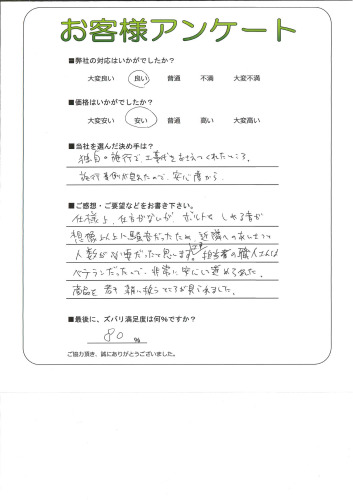 お客様アンケート
■弊社の対応はいかがでしたか?
大変良い 良い 普通 不満 大変不満
■価格はいかがでしたか?
大変安い 安い 普通 高い 大変高い
■当社を選んだ決め手は?
独自の施行で、工事代をおさえてくれたところ。
施行事例が見れたので、安心度から
■ご感想・ご要望などをお書き下さい。
仕様上、仕方がないが、ボルトを しめる音が
想像以上に騒音だったため、近隣への あいさつ
人数が 必要だったと思います。担当者の職人さんは
ベテランだったので、非常に安心して進められた。
商品を 若干 雑に扱うところが見られました。
■最後に、ズバリ満足度は何%ですか?
80 %
ご協力頂き、誠にありがとうございました。